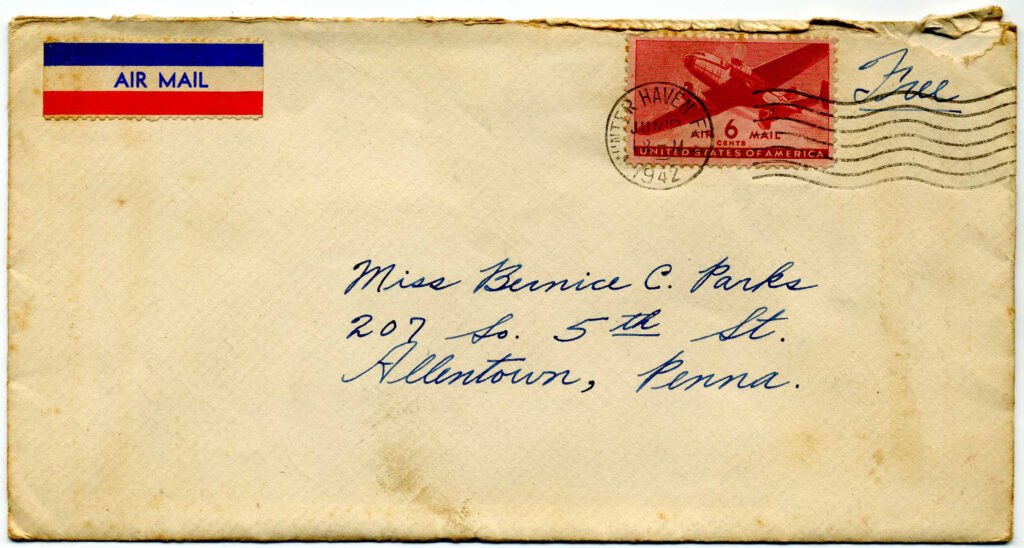 AIR MAIL
Free
WINTER HAVEN
1942
AIR 6 MAIL
CENTS
UNITED STATES OF AMERICA
Miss Bernice C. Parks
207 So. 5th St.
Allentown, Penna.